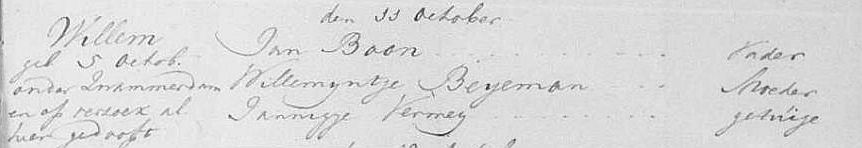 den 11 October
Willem Jan Boon Vader
geb 5 Octob.
onder Zwammerdam Willemyntje Beyeman Moeder
en op verzoek al Jannigje Vermey getuige
hier gedoopt